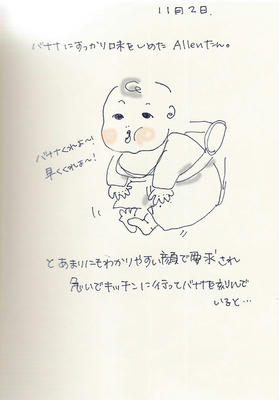 11月2日.
バナナにすっかり味をしめた Allenたん。
バナナくれよ〜!
早くくれよ〜!
とあまりにもわかりやすい顔で要求され
急いでキッチンに行ってバナナを刻んで
いると…